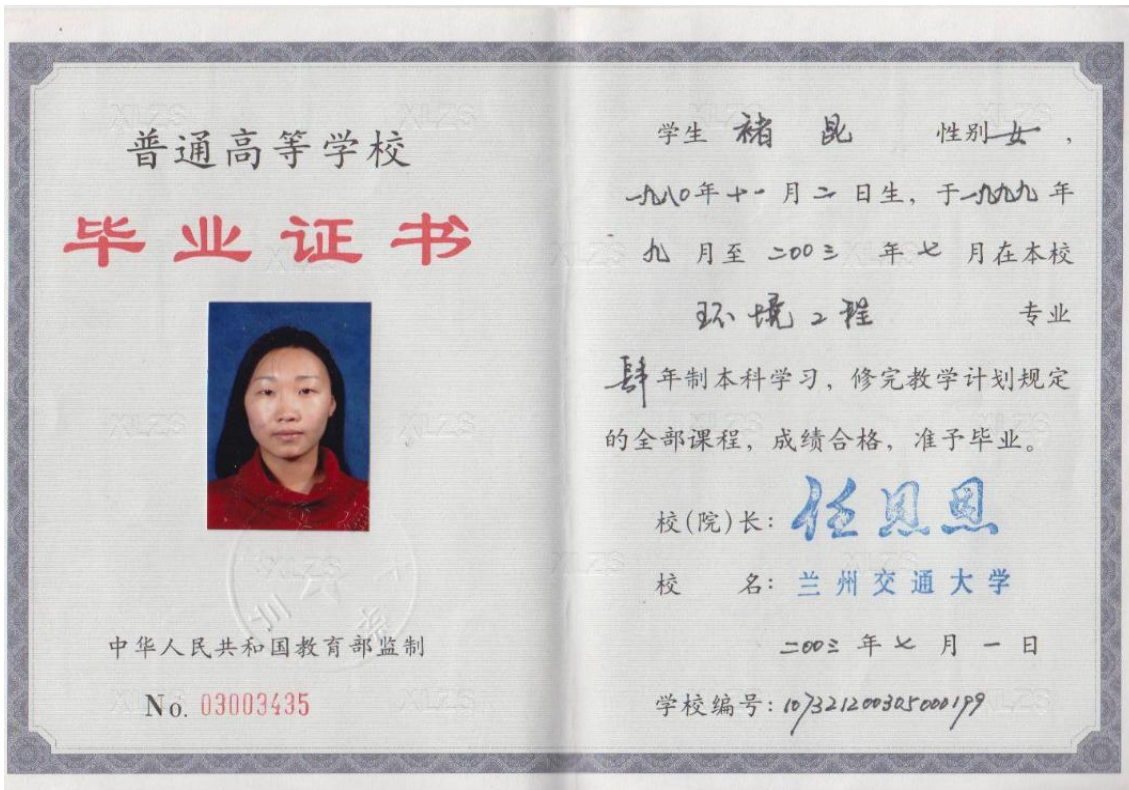 普通高等学校
毕业证书
中华人民共和国教育部监制
No. 03003435
学生 褚 昆 性别 女，
一九八〇年十一月二日生，于一九九九年
九月至二〇〇三年七月在本校
环境工程 专业
肆年制本科学习，修完教学计划规定
的全部课程，成绩合格，准予毕业。
校(院)长：任恩恩
校 名：兰州交通大学
二〇〇三年七月一日
学校编号：107321200305000199
XLZS